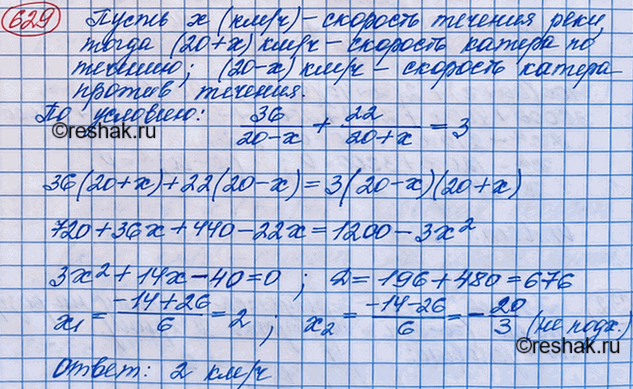 629 Пусть x (км/ч) – скорость течения реки,
тогда (20+x) км/ч – скорость катера по
течению; (20-x) км/ч – скорость катера
против течения.
По условию: 36/(20-x) + 22/(20+x) = 3
©reshak.ru
©reshak.ru
36(20+x)+22(20-x)=3(20-x)(20+x)
720+36x+440-22x=1200-3x²
3x²+14x-40=0 ; D=196+480=676
x₁=(-14+26)/6=2 ; x₂=(-14-26)/6=-20/3 (не подх.)
©reshak.ru
©reshak.ru
Ответ: 2 км/ч